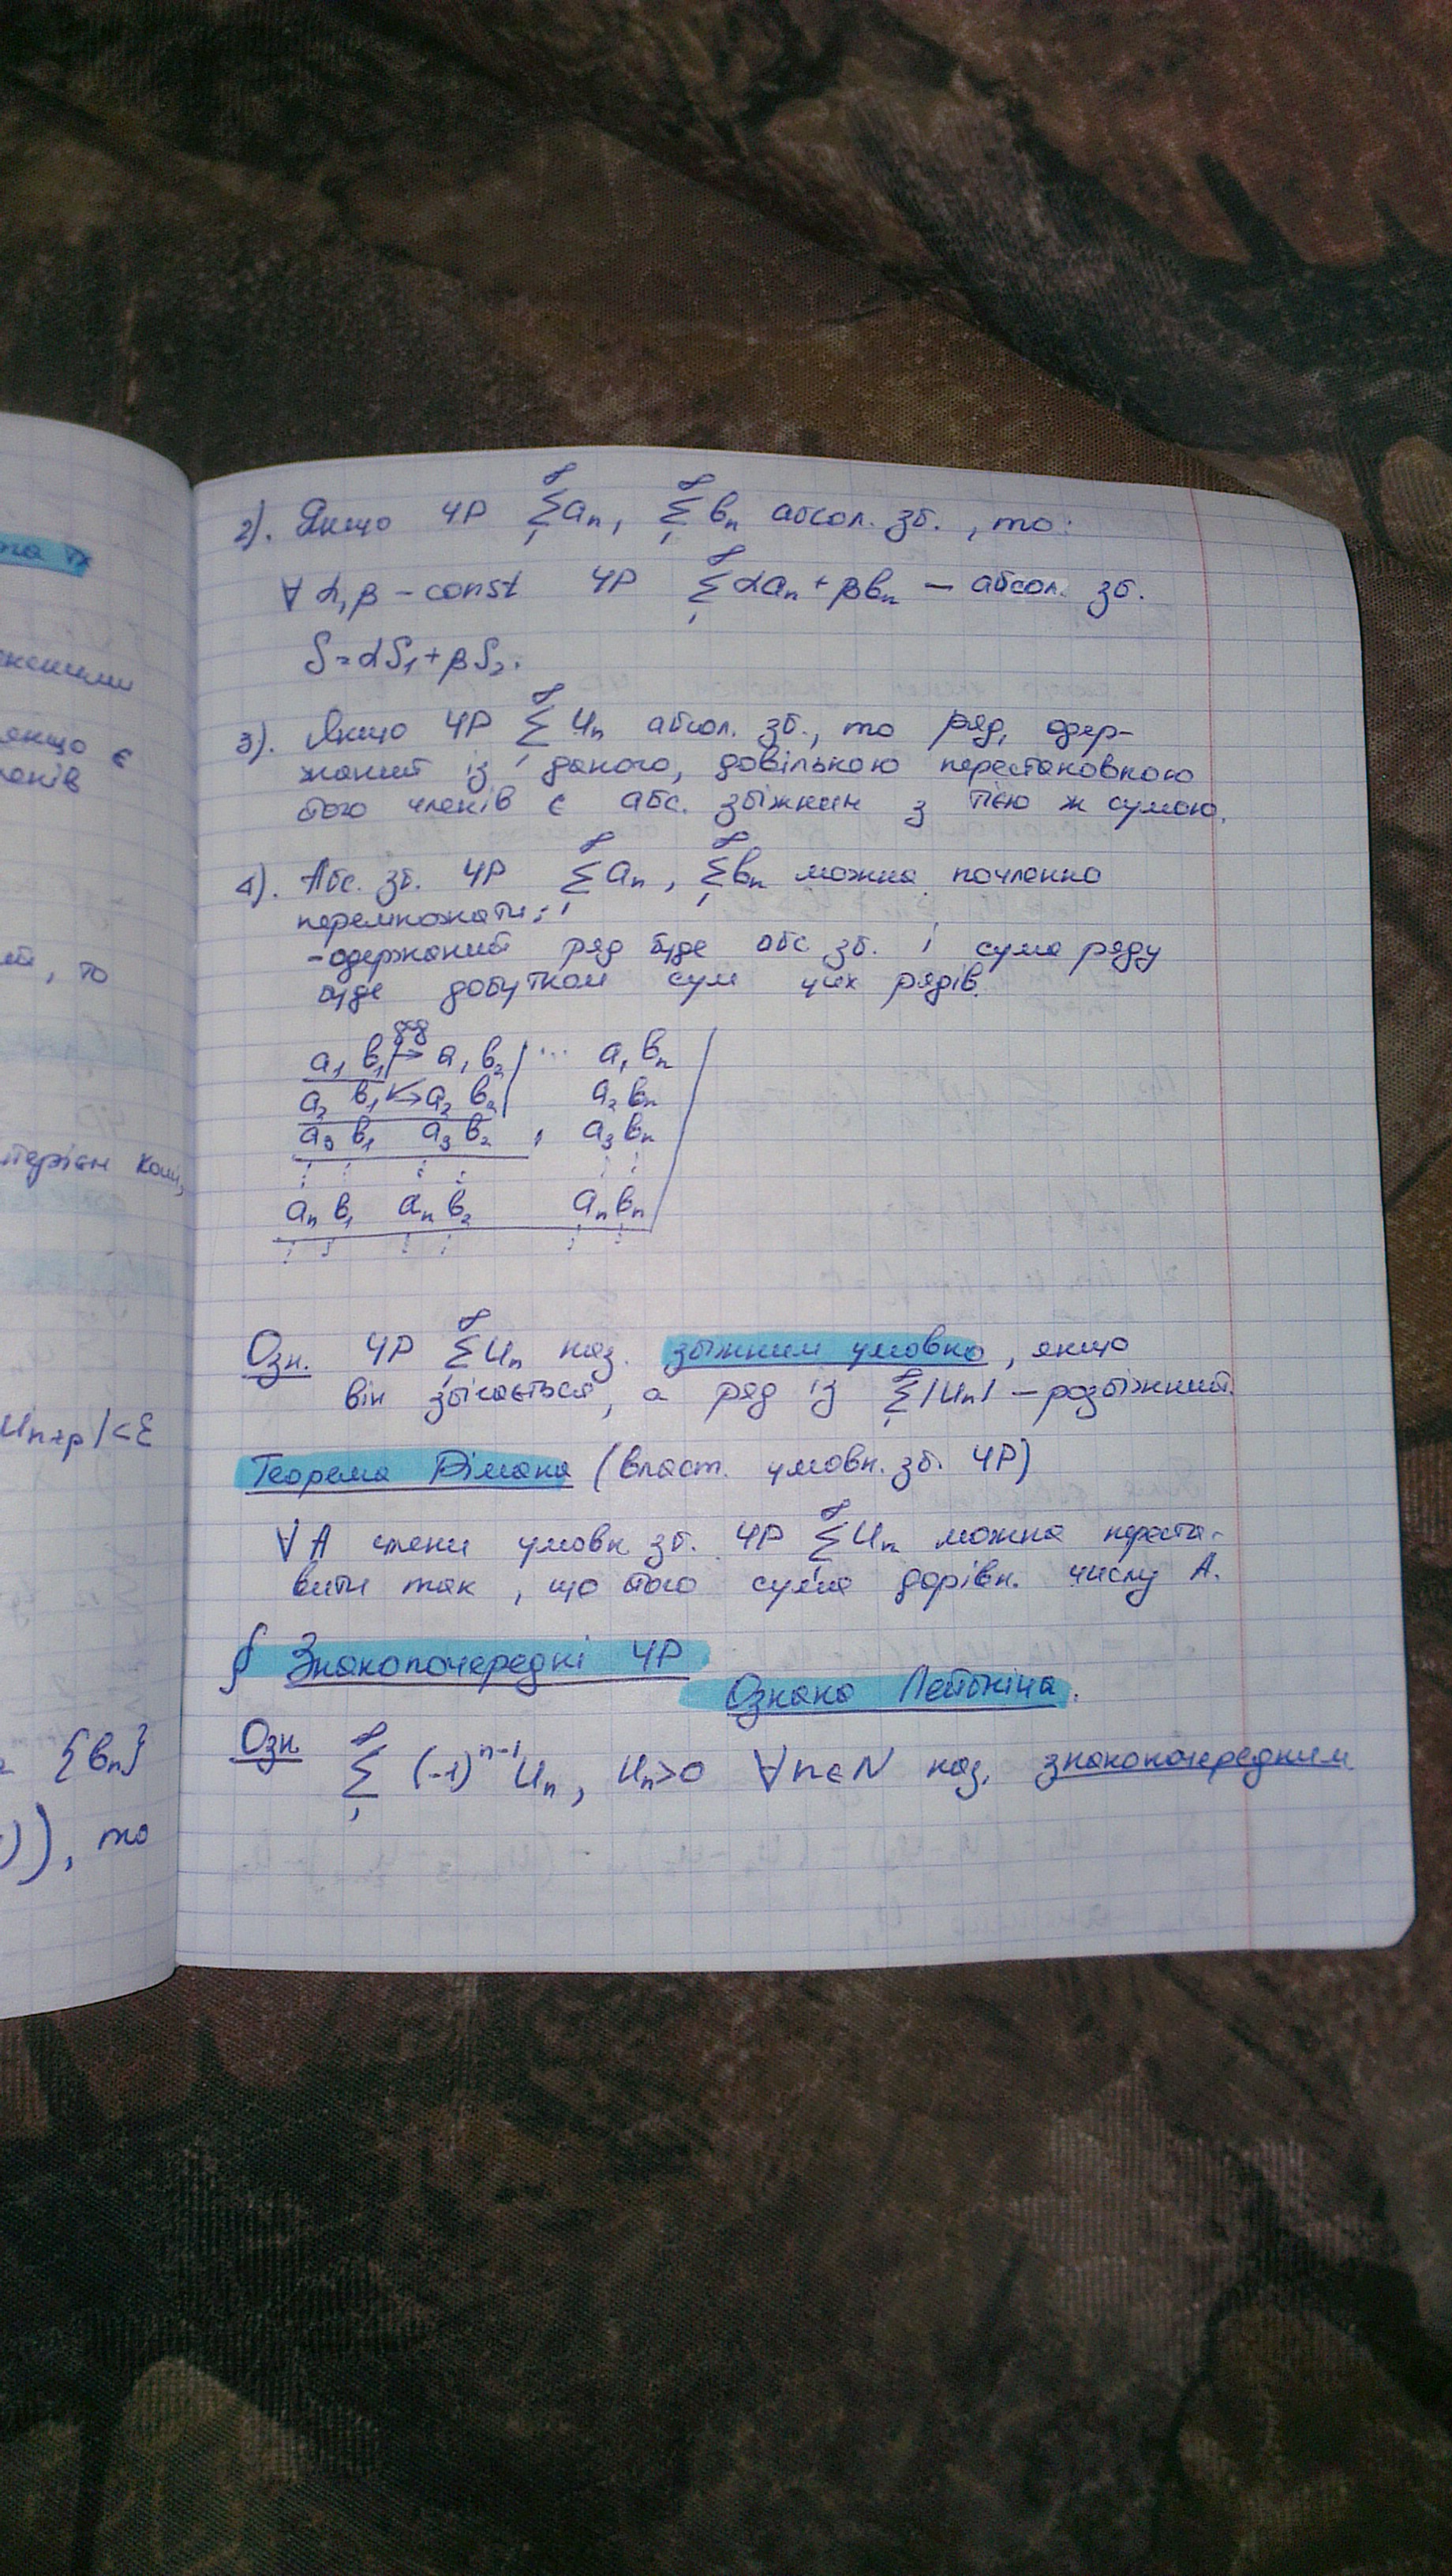 та їх
якщо є
, то
Un+p/<ε
{вn}
)), то
2). Якщо ЧР ∑₁^∞ an, ∑₁^∞ вn абсол. зб., то:
∀ α, β – const ЧР ∑₁^∞ αan + βвn – абсол. зб.
S = αS₁ + βS₂.
3). Якщо ЧР ∑₁^∞ Un абсол. зб., то ряд, одер-
жаний із даного, довільною перестановкою
його членів є абс. збіжним з тією ж сумою.
4). Абс. зб. ЧР ∑₁^∞ an, ∑₁^∞ вn можна почленно
перемножати;
- одержаний ряд буде абс зб. і сума ряду
буде добутком сум цих рядів.
a₁ в₁ → a₁ в₂ ... a₁ вn
a₂ в₁ a₂ в₂ a₂ вn
a₃ в₁ a₃ в₂ , a₃ вn
an в₁ an в₂ an вn
Озн. ЧР ∑₁^∞ Un наз. збіжним умовно, якщо
він збігається, а ряд із ∑₁^∞ |Un| – розбіжний.
Теорема Рімана (власт. умовн. зб. ЧР)
∀ A члени умовн. зб. ЧР ∑₁^∞ Un можна переста-
вити так, що його сума дорівн. числу A.
§ Знакопочередні ЧР
Ознака Лейбніца.
Озн ∑₁^∞ (-1)^(n-1) Un, Un>0 ∀n∈N наз. знакопочередним